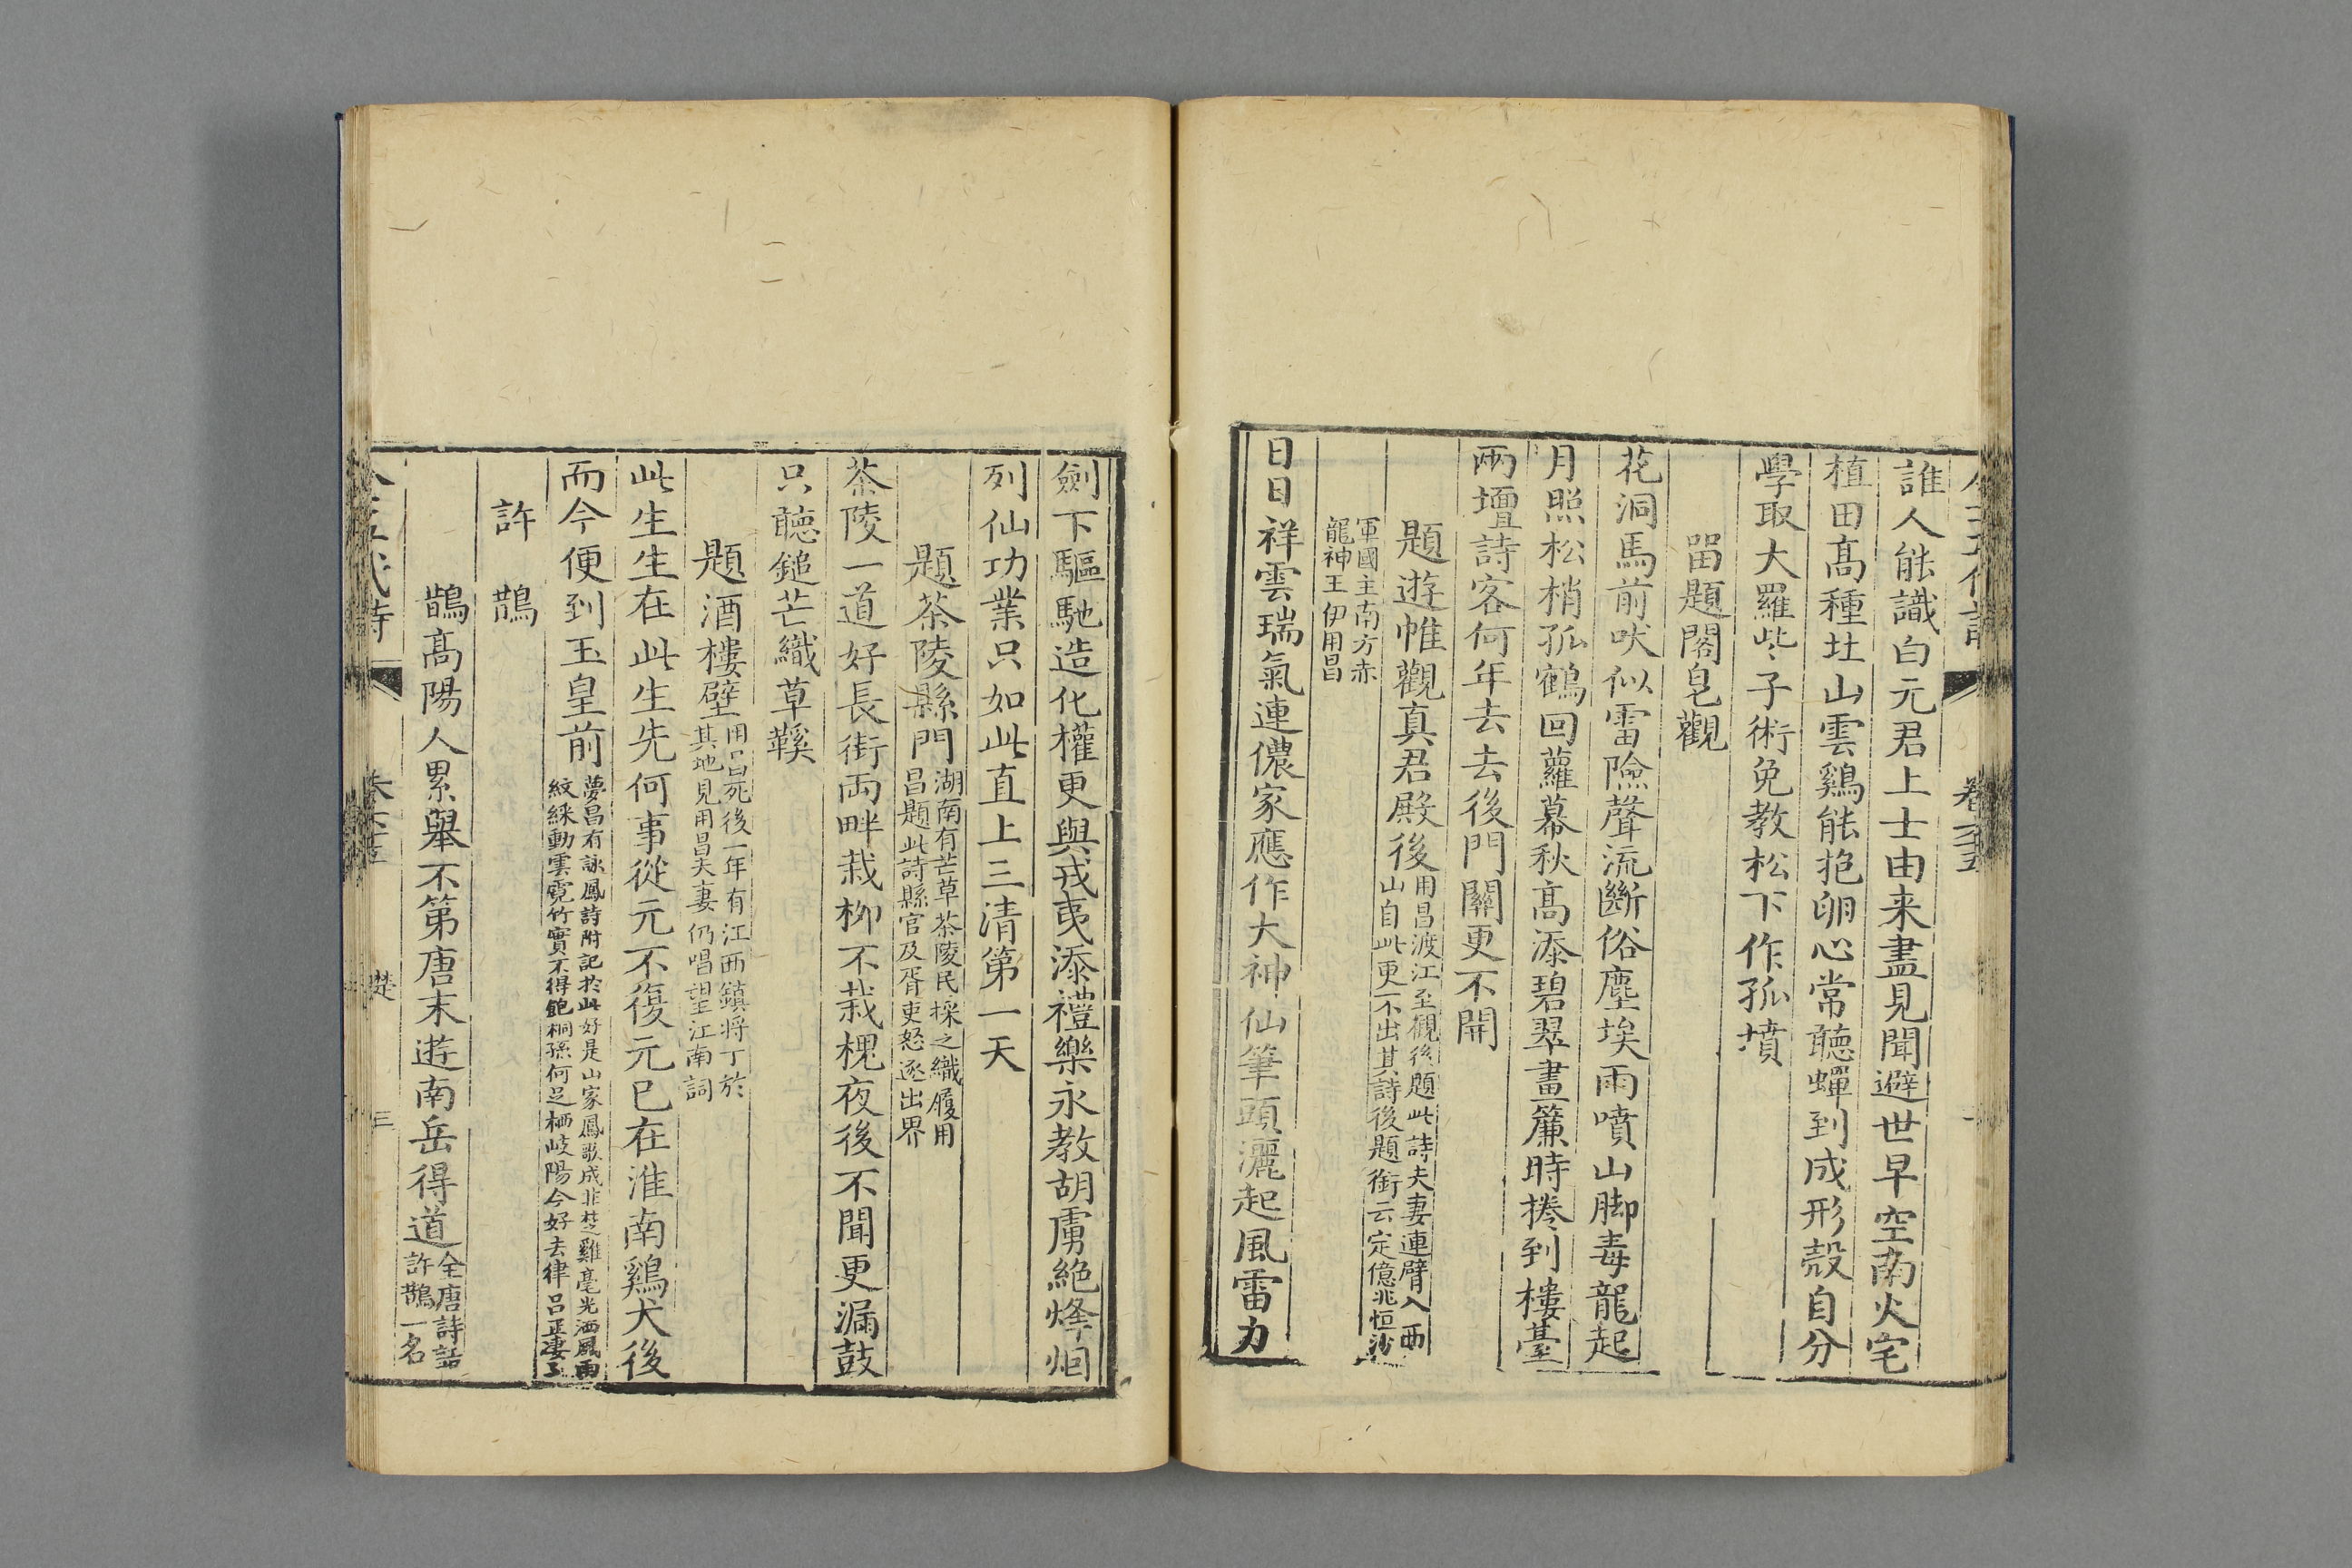 誰人能識白元君上士由来盡見聞避世早空南火宅
植田髙種㘯山雲鷄能抱卵心常聽蟬到成形殼自分
學取大羅些子術免教松下作孤墳
畱題閣皂觀
花洞馬前吠似雷險聲流斷俗塵埃雨噴山脚毒龍起
月照松梢孤鶴回蘿幕秋髙添碧翠畫簾時捲到樓臺
兩壇詩客何年去去後門關更不開
題遊帷觀真君殿後
用昌渡江至觀後題此詩夫妻連臂入西
山自此更不出其詩後題銜云定億兆恒沙
軍國主南方赤
龍神王伊用昌
日日祥雲瑞氣連儂家應作大神仙筆頭灑起風雷力
劍下驅馳造化權更與戎夷添禮樂永教胡虜絶烽烟
列仙功業只如此直上三清第一天
題茶陵縣門
湖南有芒草茶陵民採之織履用
昌題此詩縣官及胥吏怒逐出界
茶陵一道好長街兩畔栽柳不栽槐夜後不聞更漏鼓
只聽鎚芒織草鞵
題酒樓壁
用昌死後一年有江西鎮将丁於
其地見用昌夫妻仍唱望江南詞
此生生在此生先何事從元不復元已在淮南鷄犬後
而今便到玉皇前
夢昌有詠鳳詩附記於此好是山家鳳歌成非楚雞毫光洒風雨
紋綵動雲霓竹實不得飽桐孫何足栖岐陽今好去律呂正凄
許鵲
鵲髙陽人累舉不第唐末遊南岳得道
全唐詩話
許鵲一名
全五代詩
卷六十五
楚
三